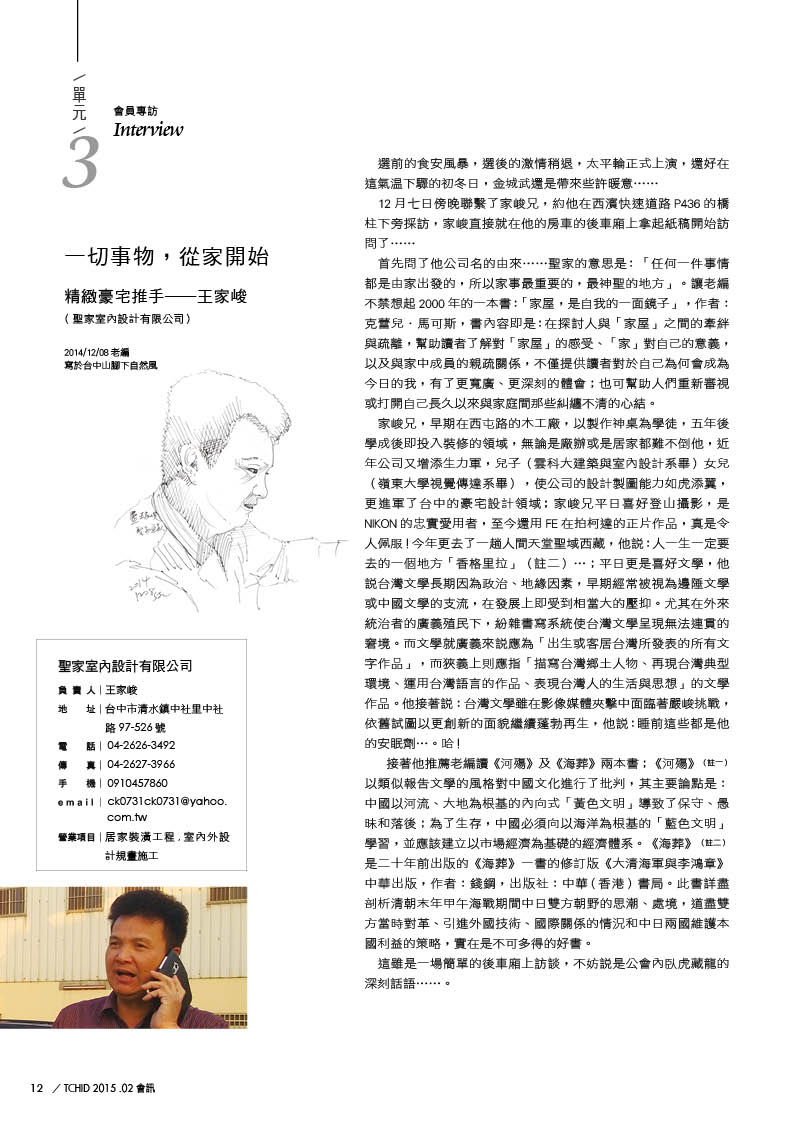 /單元/
3
會員專訪
Interview
一切事物，從家開始
精緻豪宅推手──王家峻
( 聖家室內設計有限公司 )
2014/12/08 老編
寫於台中山腳下自然風
2014
聖家室內設計有限公司
負責人｜王家峻
地址｜台中市清水鎮中社里中社
路 97-526 號
電話｜04-2626-3492
傳真｜04-2627-3966
手機｜0910457860
email｜ck0731ck0731@yahoo.
com.tw
營業項目｜居家裝潢工程 , 室內外設
計規畫施工
選前的食安風暴，選後的激情稍退，太平輪正式上演，還好在
這氣溫下驟的初冬日，金城武還是帶來些許暖意⋯⋯
12 月七日傍晚聯繫了家峻兄，約他在西濱快速道路 P436 的橋
柱下旁採訪，家峻直接就在他的房車的後車廂上拿起紙稿開始訪
問了⋯⋯
首先問了他公司名的由來⋯⋯聖家的意思是：「任何一件事情
都是由家出發的，所以家事最重要的，最神聖的地方」。讓老編
不禁想起 2000 年的一本書：「家屋，是自我的一面鏡子」，作者：
克蕾兒．馬可斯，書內容即是：在探討人與「家屋」之間的牽絆
與疏離，幫助讀者了解對「家屋」的感受、「家」對自己的意義，
以及與家中成員的親疏關係，不僅提供讀者對於自己為何會成為
今日的我，有了更寬廣、更深刻的體會；也可幫助人們重新審視
或打開自己長久以來與家庭間那些糾纏不清的心結。
家峻兄，早期在西屯路的木工廠，以製作神桌為學徒，五年後
學成後即投入裝修的領域，無論是廠辦或是居家都難不倒他，近
年公司又增添生力軍，兒子（雲科大建築與室內設計系畢）女兒
（嶺東大學視覺傳達系畢），使公司的設計製圖能力如虎添翼，
更進軍了台中的豪宅設計領域；家峻兄平日喜好登山攝影，是
NIKON 的忠實愛用者，至今還用 FE 在拍柯達的正片作品，真是令
人佩服！今年更去了一趟人間天堂聖域西藏，他說：人一生一定要
去的一個地方「香格里拉」（註二）⋯；平日更是喜好文學，他
說台灣文學長期因為政治、地緣因素，早期經常被視為邊陲文學
或中國文學的支流，在發展上即受到相當大的壓抑。尤其在外來
統治者的廣義殖民下，紛雜書寫系統使台灣文學呈現無法連貫的
窘境。而文學就廣義來說應為「出生或客居台灣所發表的所有文
字作品」，而狹義上則應指「描寫台灣鄉土人物、再現台灣典型
環境、運用台灣語言的作品、表現台灣人的生活與思想」的文學
作品。他接著說：台灣文學雖在影像媒體夾擊中面臨著嚴峻挑戰，
依舊試圖以更創新的面貌繼續蓬勃再生，他說：睡前這些都是他
的安眠劑⋯。哈！
接著他推薦老編讀《河殤》及《海葬》兩本書；《河殤》（註一）
以類似報告文學的風格對中國文化進行了批判，其主要論點是：
中國以河流、大地為根基的內向式「黃色文明」導致了保守、愚
昧和落後；為了生存，中國必須向以海洋為根基的「藍色文明」
學習，並應該建立以市場經濟為基礎的經濟體系。《海葬》（註二）
是二十年前出版的《海葬》一書的修訂版《大清海軍與李鴻章》
中華出版，作者：錢鋼，出版社：中華（香港）書局。此書詳盡
剖析清朝末年甲午海戰期間中日雙方朝野的思潮、處境，道盡雙
方當時對革、引進外國技術、國際關係的情況和中日兩國維護本
國利益的策略，實在是不可多得的好書。
這雖是一場簡單的後車廂上訪談，不妨說是公會內臥虎藏龍的
深刻話語⋯⋯。
12 ／TCHID 2015 .02 會訊